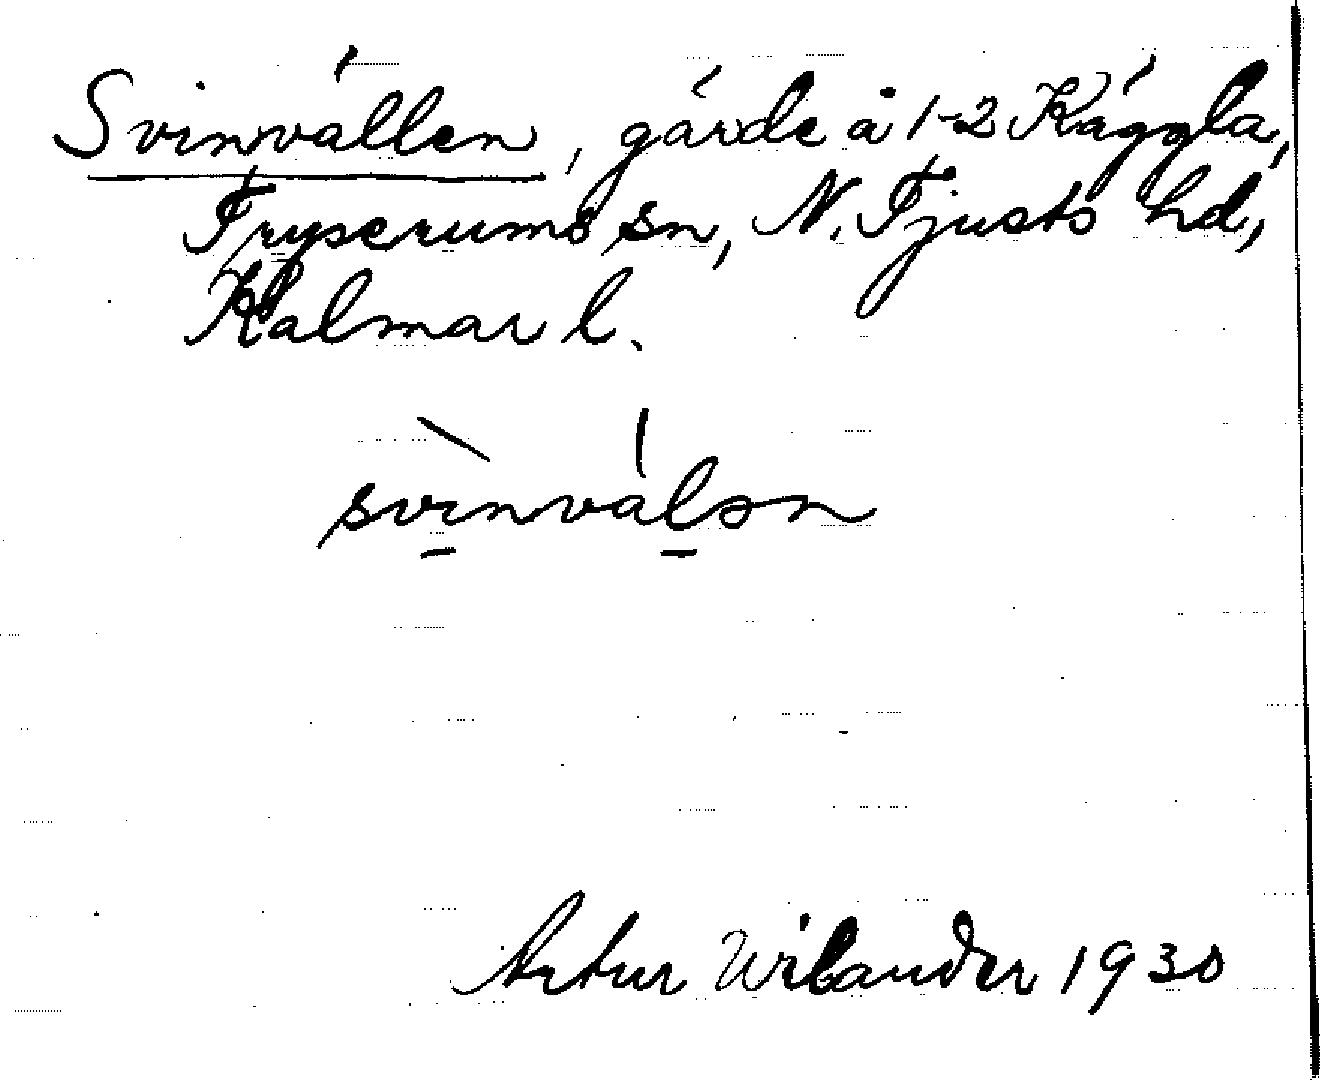 Svinvällen, gärde å 1-2 Käggla,
Tryserums sn, N. Tjusts hd,
Kalmar l.
svìnválən
Artur Wilander 1930